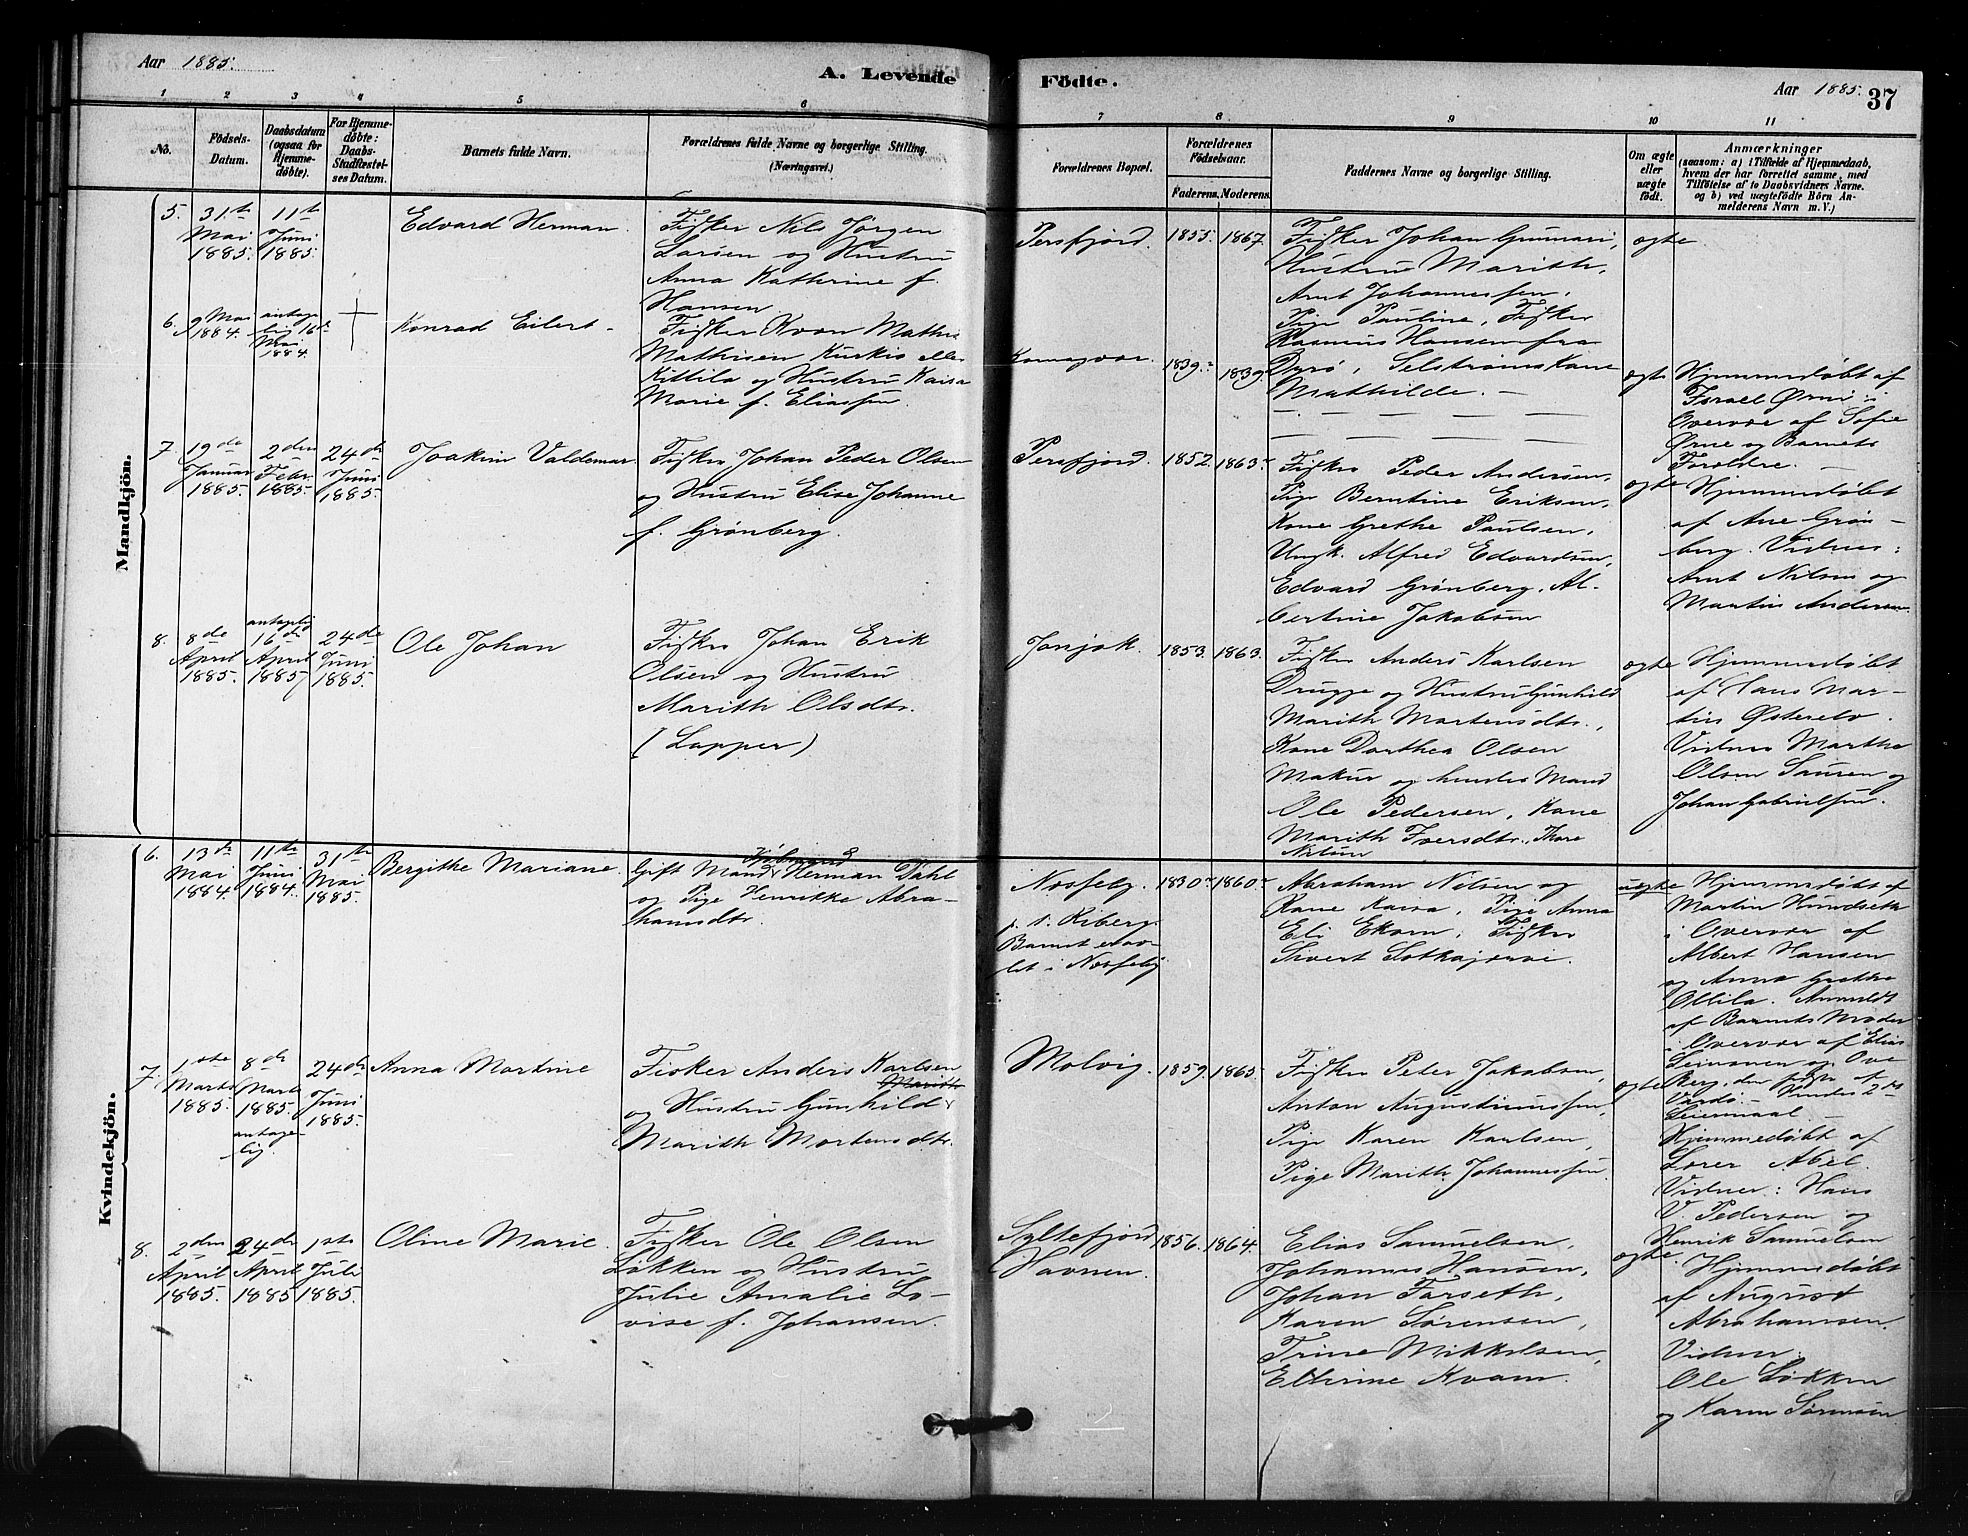 Aar 1885.
A. Levende Födte.
Aar 1885. 37
1 2 3 4 5 6 7 8 9 10 11
No.
Födsels-
Datum.
Daabsdatum
(ogsaa for
Hjemme-
døbte).
For Hjemme-
døbte:
Daabs-
Stadfæstel-
ses Datum.
Barnets fulde Navn.
Forældrenes fulde Navne og borgerlige Stilling.
(Næringsvei.)
Forældrenes Bopæl.
Forældrenes
Födselsaar.
Faderens. Moderens.
Faddernes Navne og borgerlige Stilling.
Om ægte
eller
uægte
födt.
Anmærkninger
(saasom: a) i Tilfælde af Hjemmedaab,
hvem der har forrettet samme, med
Tilföielse af to Daabsvidners Navne.
og b) ved uægtefödte Börn An-
melderens Navn m. V.)
Mandkjön.
5.
31te
Mai
1885.
11te
Juni
1885.
Edvard Herman.
Fisker Nils Jørgen
Larsen og Hustru
Anna Kathrine f.
Hansen
Persfjord.
1855. 1867.
Fisker Johan Gunnari,
Hustru Marith,
Arnt Johannessen,
Pige Pauline, Fisker
Rasmus Hansen fra
Dyrø, Selstrøms Kone
Mathilde. —
ægte
6.
9 Mai
1884.
antage-
lig 16de
Mai
1884
Konrad Eilert.
Fisker Kvæn Mathis
Mathisen Kurkio eller
Kittila og Hustru Kaisa
Marie f. Eliassen.
Komagvær.
1839. 1839.
ægte
Hjemmedøbt af
Israel Ørni i
Overvær af Sofie
Ørne og Barnets
Foroldre. —
7.
19de
Januar
1885.
2den
Febr.
1885.
24de
Juni
1885.
Joakim Valdemar.
Fisker Johan Peder Olsen
og Hustru Elise Johanne
f. Grønberg.
Persfjord.
1852. 1863.
Fisker Peder Andersen,
Pige Berntine Eriksen,
Kone Grethe Paulsen,
Ungk. Alfred Edvardsen,
Edvard Grønberg, Al-
bertine Jakobsen
ægte
Hjemmedøbt
af Ane Grøn-
berg. Vidner:
Arnt Nilsen og
Martin Andersen.
8.
8de
April
1885.
antagelig
16de
April
1885
24de
Juni
1885.
Ole Johan
Fisker Johan Erik
Olsen og Hustru
Marith Olsdtr.
(Lapper)
Jonjok.
1853. 1863.
Fisker Anders Karlsen
Drugge og Hustru Gunhild
Marith Martensdtr.,
Kone Dorthea Olsen
Makur og hendes Mand
Ole Pedersen, Kone
Marith Iversdtr. Thore
Nilsen
ægte
Hjemmedøbt
af Hans Mar-
tin Østerelv.
Vidner Marthe
Olsen Sauren og
Johan Gabrielsen.
Kvindekjön.
6.
13de
Mai
1884.
11te
Juni
1884.
31te
Mai
1885.
Bergithe Mariane.
Kjøbmand
Gift Mand Herman Dahl
og Pige Henrikke Abra-
hamsdtr.
Nesseby.
p. t. Kiberg.
Barnet er av-
let i Nesseby
1830. 1860.
Abraham Nilsen og
Kone Kaisa, Pige Anna
Eli Ekorn, Fisker
Sivert Sotkajærve.
uægte
Hjemmedøbt af
Martin Hundseth
i Overvær af
Albert Hansen
og Anna Grethe
Ollila. Anmeldt
af Barnets Moder
i Overvær af Elias
Leinonen og Ove
Berg, den sidste af
Vardø. — Hendes 2det
Leiermaal —
7.
1ste
Marts
1885.
8de
Marts
1885.
antage-
lig.
24de
Juni
1885.
Anna Martine
Fisker Anders Karlsen
Marith
og Hustru Gunhild
Marith Mortensdtr.
Molvig.
1859. 1865.
Fisker Peter Jakobsen,
Anton Augustinussen,
Pige Karen Karlsen,
Pige Marith Johannessen.
ægte
Hjemmedøbt af
Lærer Abel.
Vidner: Hans
V Pedersen og
Henrik Samuelsen
8.
2den
April
1885.
24de
April
1885
1ste
Juli
1885.
Oline Marie.
Fisker Ole Olsen
Løkken og Hustru
Julie Amalie Lo-
vise f. Johansen.
Syltefjord
Havnen.
1856. 1864.
Elias Samuelsen,
Johannes Hansen,
Johan Forseth,
Karen Sørensen,
Trine Mikkelsen,
Ellerine Kvam.
ægte
Hjemmedøbt
af August
Abrahamsen.
Vidner:
Ole Løkken
og Karen Sørensen